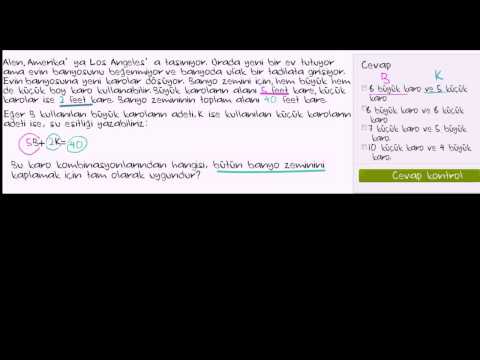 Alen, Amerika' ya Los Angeles' a taşınıyor. Orada yeni bir ev tutuyor
ama evin banyosunu beğenmiyor ve banyoda ufak bir tadilata girişiyor.
Evin banyosuna yeni karolar döşüyor. Banyo zemini için, hem büyük hem
de küçük boy karo kullanabilir. Büyük karoların alanı 5 feet kare, küçük
karolar ise 2 feet kare. Banyo zemininin toplam alanı 40 feet kare.
Eğer B kullanılan büyük karoların adeti, K ise kullanılan küçük karoların
adeti ise, şu eşitliği yazabiliriz:
5B+2K=40
Bu karo kombinasyonlarından hangisi, bütün banyo zeminini
kaplamak için tam olarak uygundur?
Cevap
B K
büyük karo ve 5 küçük
karo
8 büyük karo ve 8 küçük
karo
7 küçük karo ve 5 büyük
karo
10 küçük karo ve 4 büyük
karo
Cevap kontrol